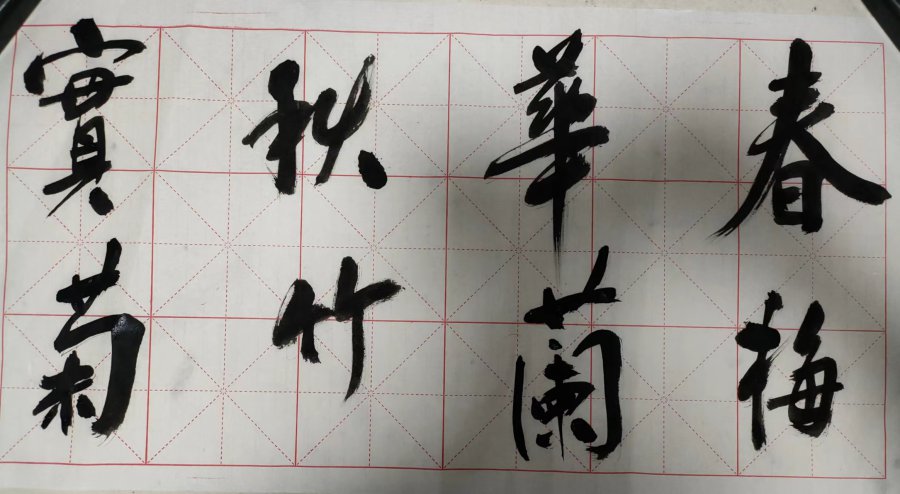 春梅
華蘭
秋竹
實菊